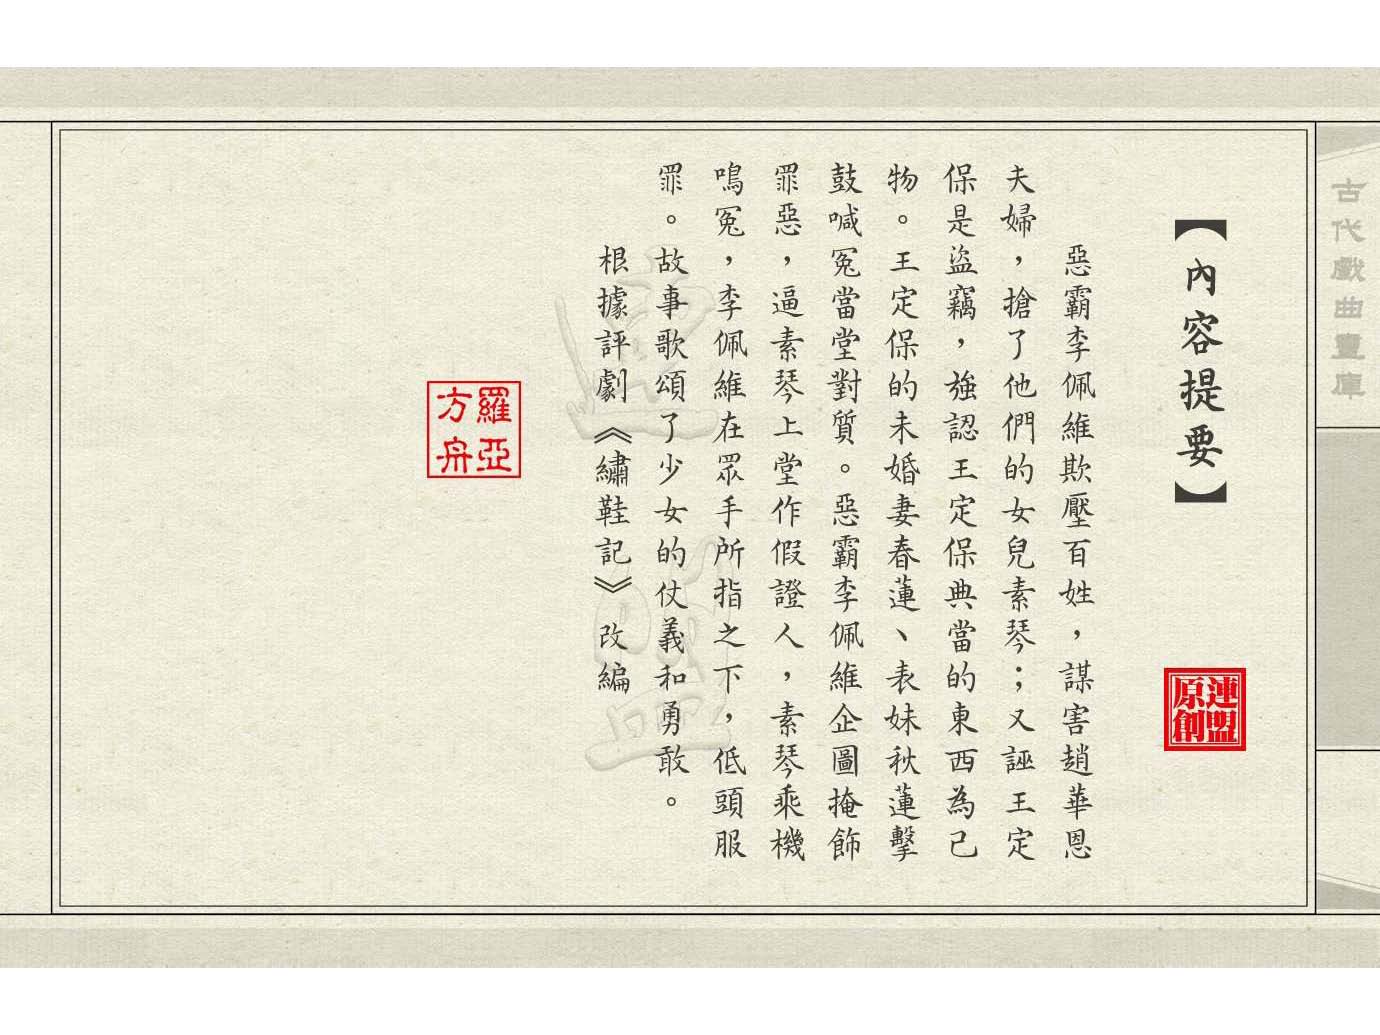 古代戲曲寶庫
【內容提要】
連盟
原創
惡霸李佩維欺壓百姓，謀害趙華恩
夫婦，搶了他們的女兒素琴；又誣王定
保是盜竊，強認王定保典當的東西為己
物。王定保的未婚妻春蓮、表妹秋蓮擊
鼓喊冤當堂對質。惡霸李佩維企圖掩飾
罪惡，逼素琴上堂作假證人，素琴乘機
鳴冤，李佩維在眾手所指之下，低頭服
罪。故事歌頌了少女的仗義和勇敢。
根據評劇《繡鞋記》改編
羅亞
方舟